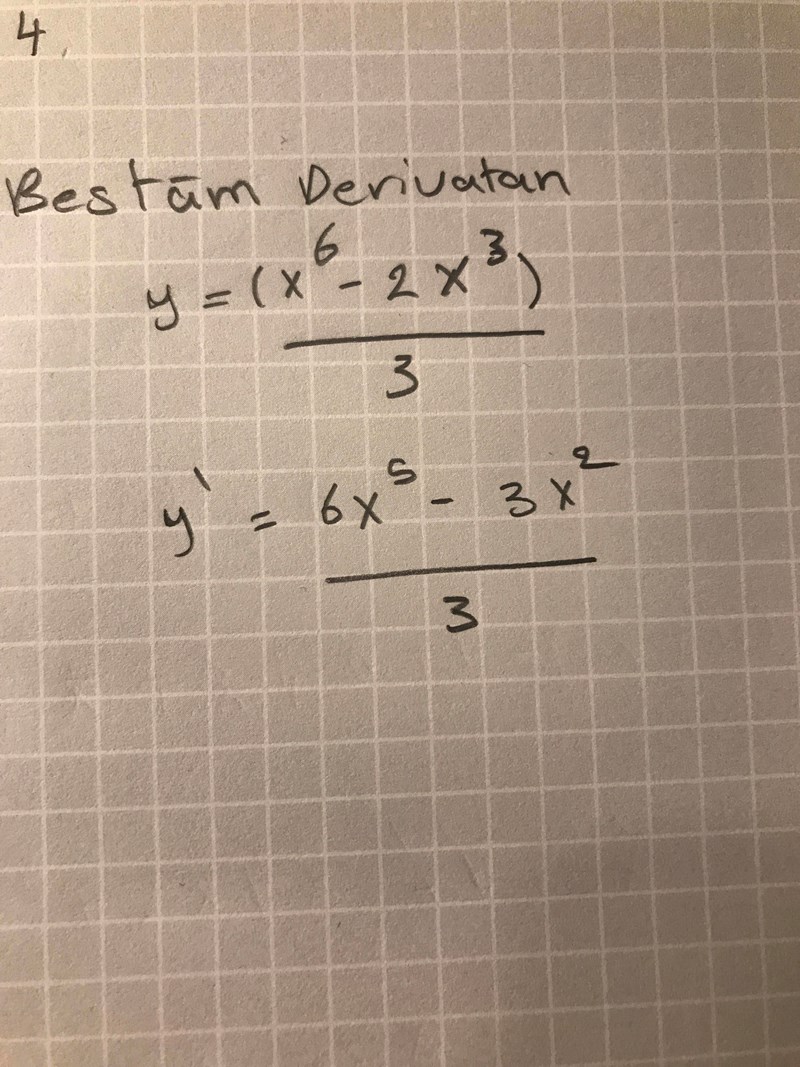 4.
Bestäm Derivatan
y = (x⁶ - 2x³)
3
y' = 6x⁵ - 3x²
3